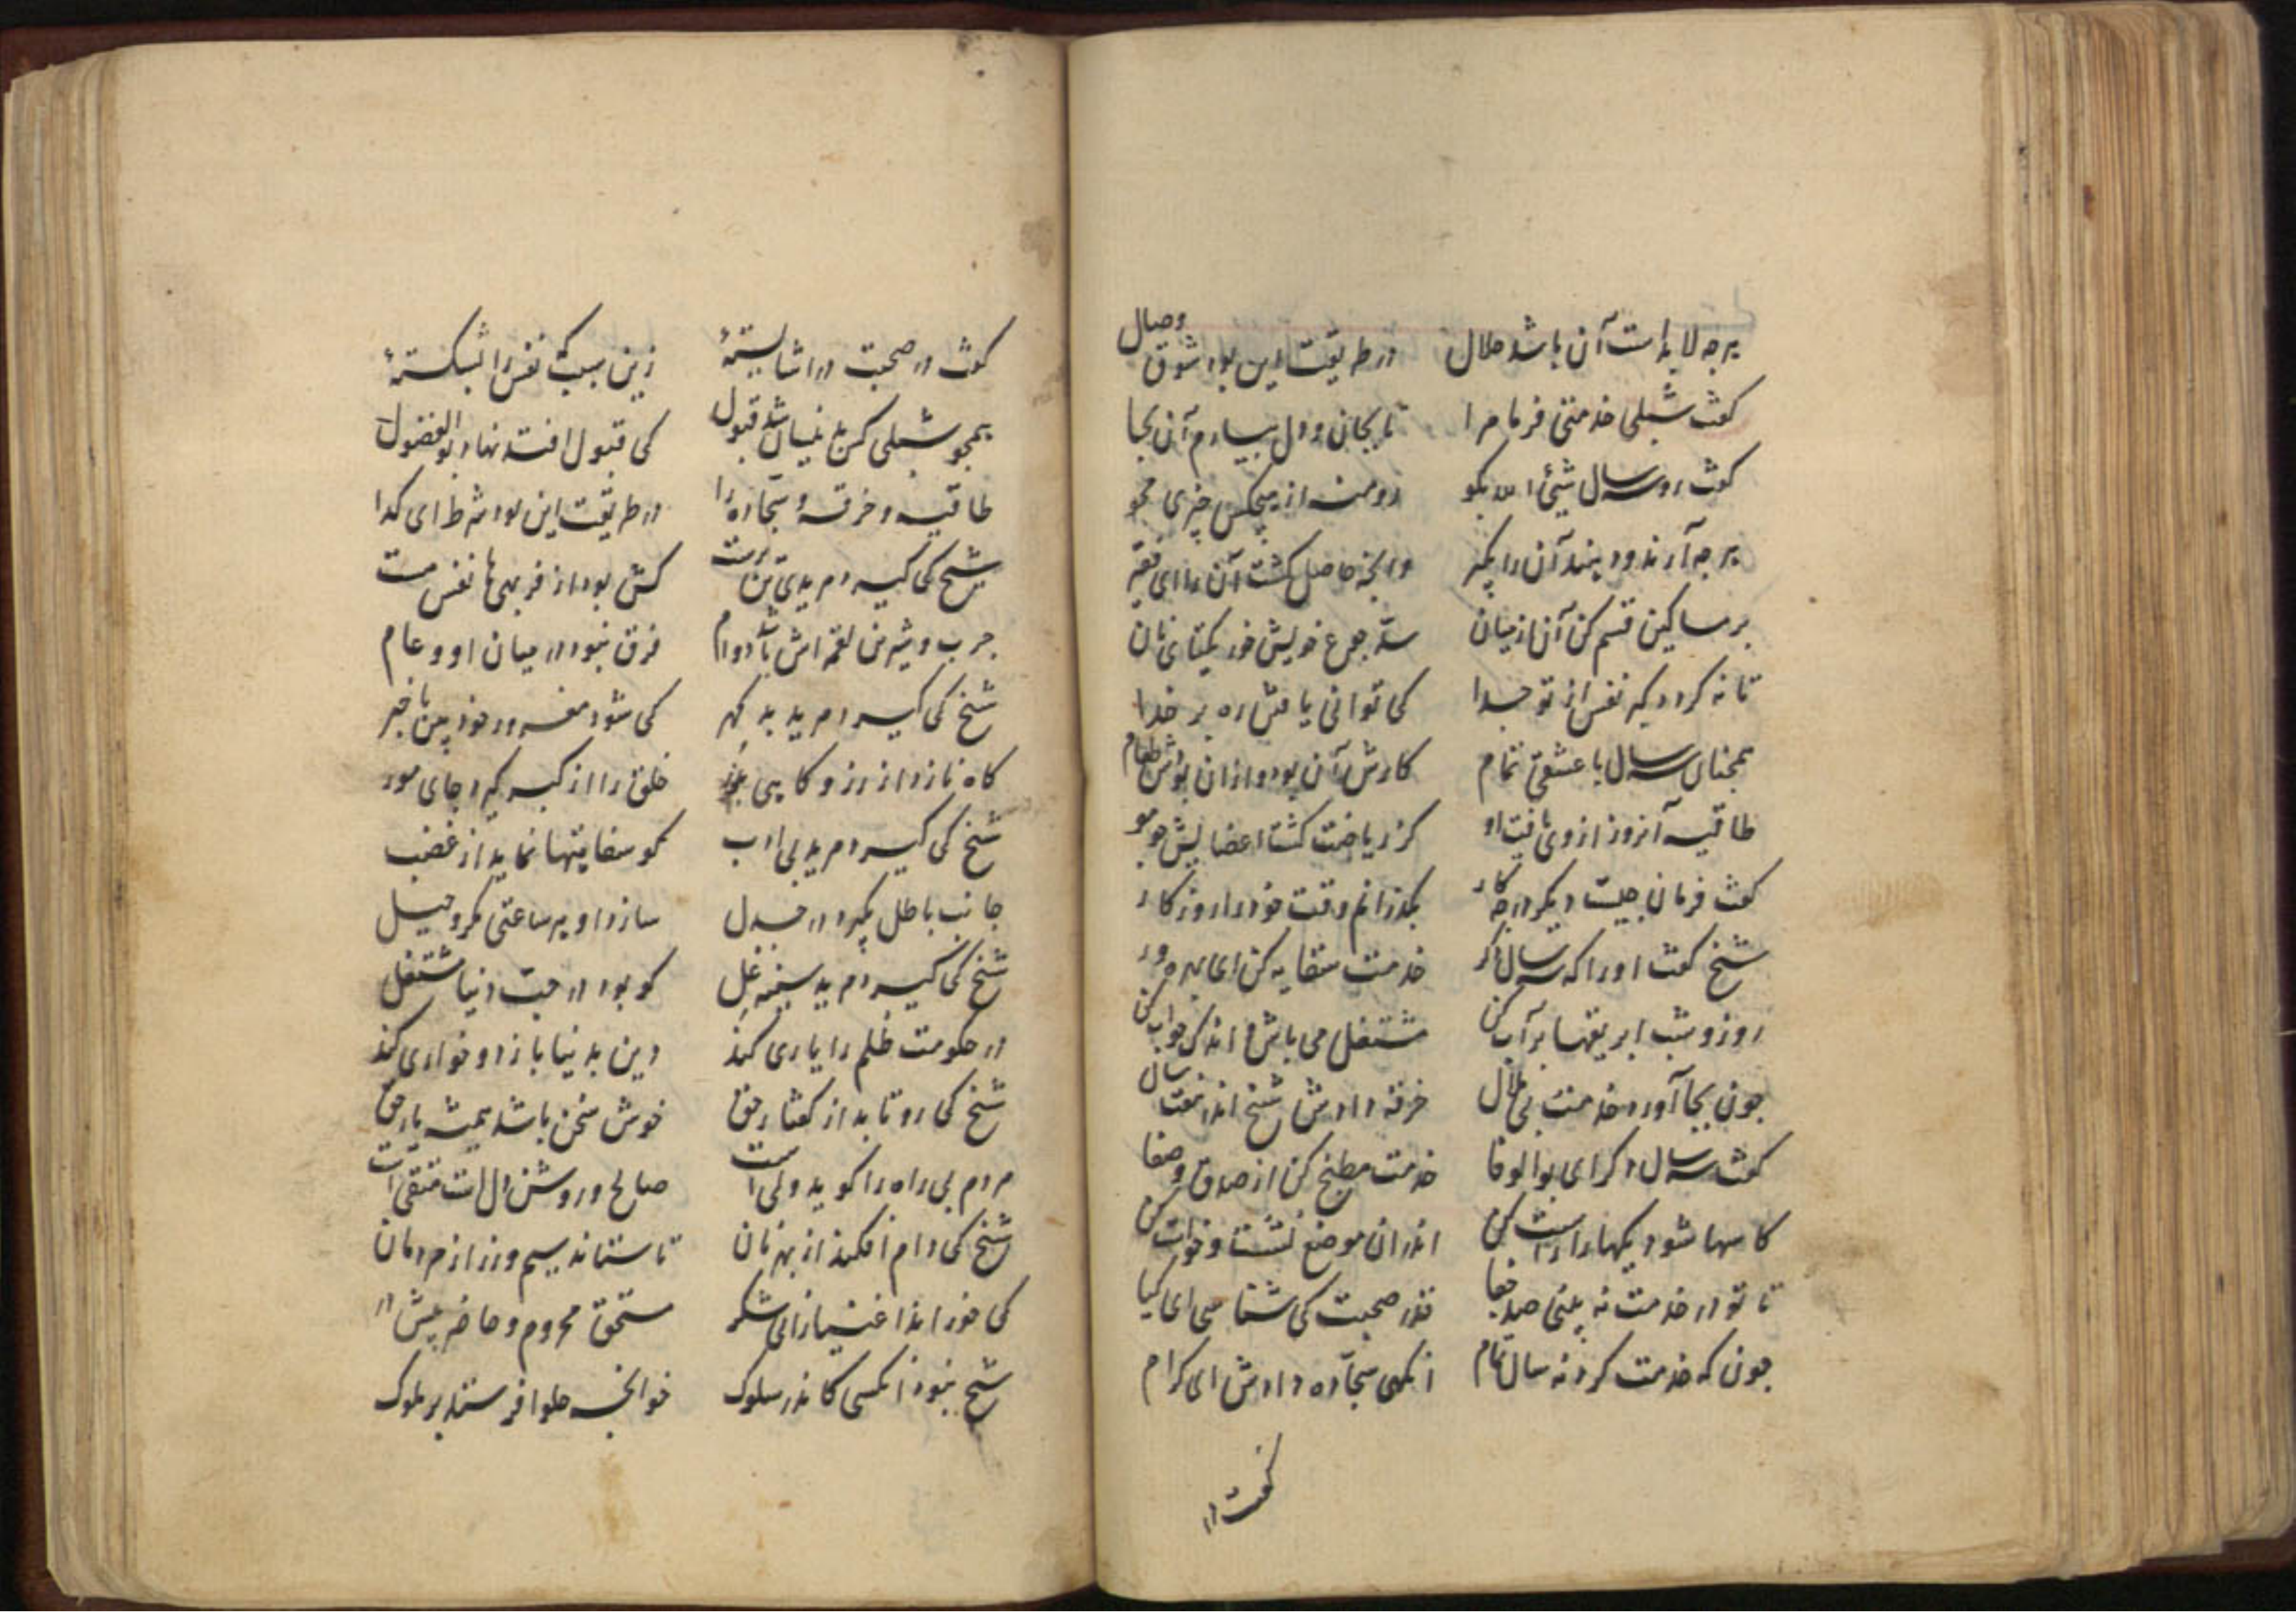 هرچه لابد است آن باشد حلال در طریقت این بود شوق وصال
گفت شبلی خدمتی فرما مرا تا بجان و دل بیارم آن بجا
گفت رو سه سال شیئ الله بگو رو منه از هیچکس چیزی مجو
هرچه آرند و دهند آن را بگیر وانچه حاصل گشت آن را ای فقیر
بر مساکین قسم کن آن از میان سد جوع خویش خور یکتای نان
تا نه گردد کبر نفس از تو جدا کی توانی یافتن ره بر خدا
همچنان سه سال با عشقی تمام کارش آن بود و ازان بودش طعام
طاقیه آنروز از وی یافت او کز ریاضت گشت اعضایش چو مو
گفت فرمان چیست دیگر در چه کار بگذرانم وقت خود را روزگار
شیخ گفت او را که سه سال دگر خدمت سقایه کن ای بهره ور
روز و شب ابریقها پر آب کن مشتغل می باش و اندک خواب کن
چون بجا آورد خدمت بی ملال خرقه دادش شیخ اندر هفت سال
گفت سه سال دگر ای بوالوفا خدمت مطبخ کن از صدق و صفا
کاسها شو دیکها را راست کن اندران موضع نشست و خواست کن
تا تو در خدمت نه بینی صد جفا قدر صحبت کی شناسی ای کیا
چون که خدمت کرد نه سال تمام انگهی سجاده دادش ای کرام
گفت در
گفت در صحبت در اشایستهٔ زین سبب کت نفس را بشکستهٔ
همچو شبلی کن بدینسان شد قبول کی قبول افتد نهاد بوالفضول
طاقیه و خرقه و سجاده را در طریقت این بود شرط ای گدا
شیخ کی گیرد مرید تن پرست کش بود از فربهی ها نفس مست
چرب و شیرین لقمه اش باشد دوام فرق نبود در میان او و عام
شیخ کی گیرد مرید بد گهر کی شود مغرور خود بین با خبر
کاه نازد از زر و کاهی بزور خلق را از کبر گیرد جای مور
شیخ کی گیرد مرید بی ادب کو سفاهتها نماید از غضب
جانب باطل بگیرد در جدل سازد او هر ساعتی مکر و حیل
شیخ کی گیرد مرید سینه غل کو بود در حب دنیا مشتغل
در حکومت ظلم را یاری کند دین بدنیا بازد و خواری کند
شیخ کی رو تابد از گفتار حق خوش سخن باشد همیشه یار حق
مردم بی راه را گوید ولی است صالح و روشن دل است متقی است
شیخ کی دام افکند از بهر نان تا ستاند سیم و زر از مردمان
کی خوراند اغنیا را نی شکر مستحق محروم و حاضر پیش در
شیخ نبود انکسی کاندر سلوک خوانچه حلوا فرستد بر ملوک